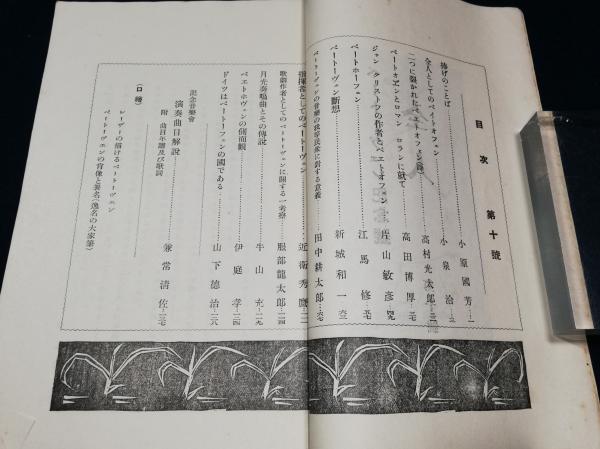 目次 第十號
捧げのことば……小原國芳…一
全人としてのベイトオフェン……小泉洽…三
二つに裂かれたベエトオフェン(譯)……高村光太郎
ベートオヱンとロマン ロランに就て……高田博厚
ジャン クリストフの作者とベエトオフェン……片山敏彦
ベートホーフェン……江馬修
ベートーヴェン斷想……新城和一
ベートーヴェンの音樂の我等民衆に對する意義……田中耕太郎
指揮者としてのベートーヴェン……近衛秀麿
歌劇作者としてのベートーヴェンに關する一考察……服部龍太郎
月光奏鳴曲とその傳說……牛山充
ベエトホヴェンの側面觀……伊庭孝
ドイツはベートーフェンの國である……山下德治
記念音樂會
演奏曲目解說……兼常清佐
附 曲目年譜及び歌詞
(口繪)
レーザーの描けるベートーヴェン
ベートーヴェンの肖像と署名(逸名の大家筆)